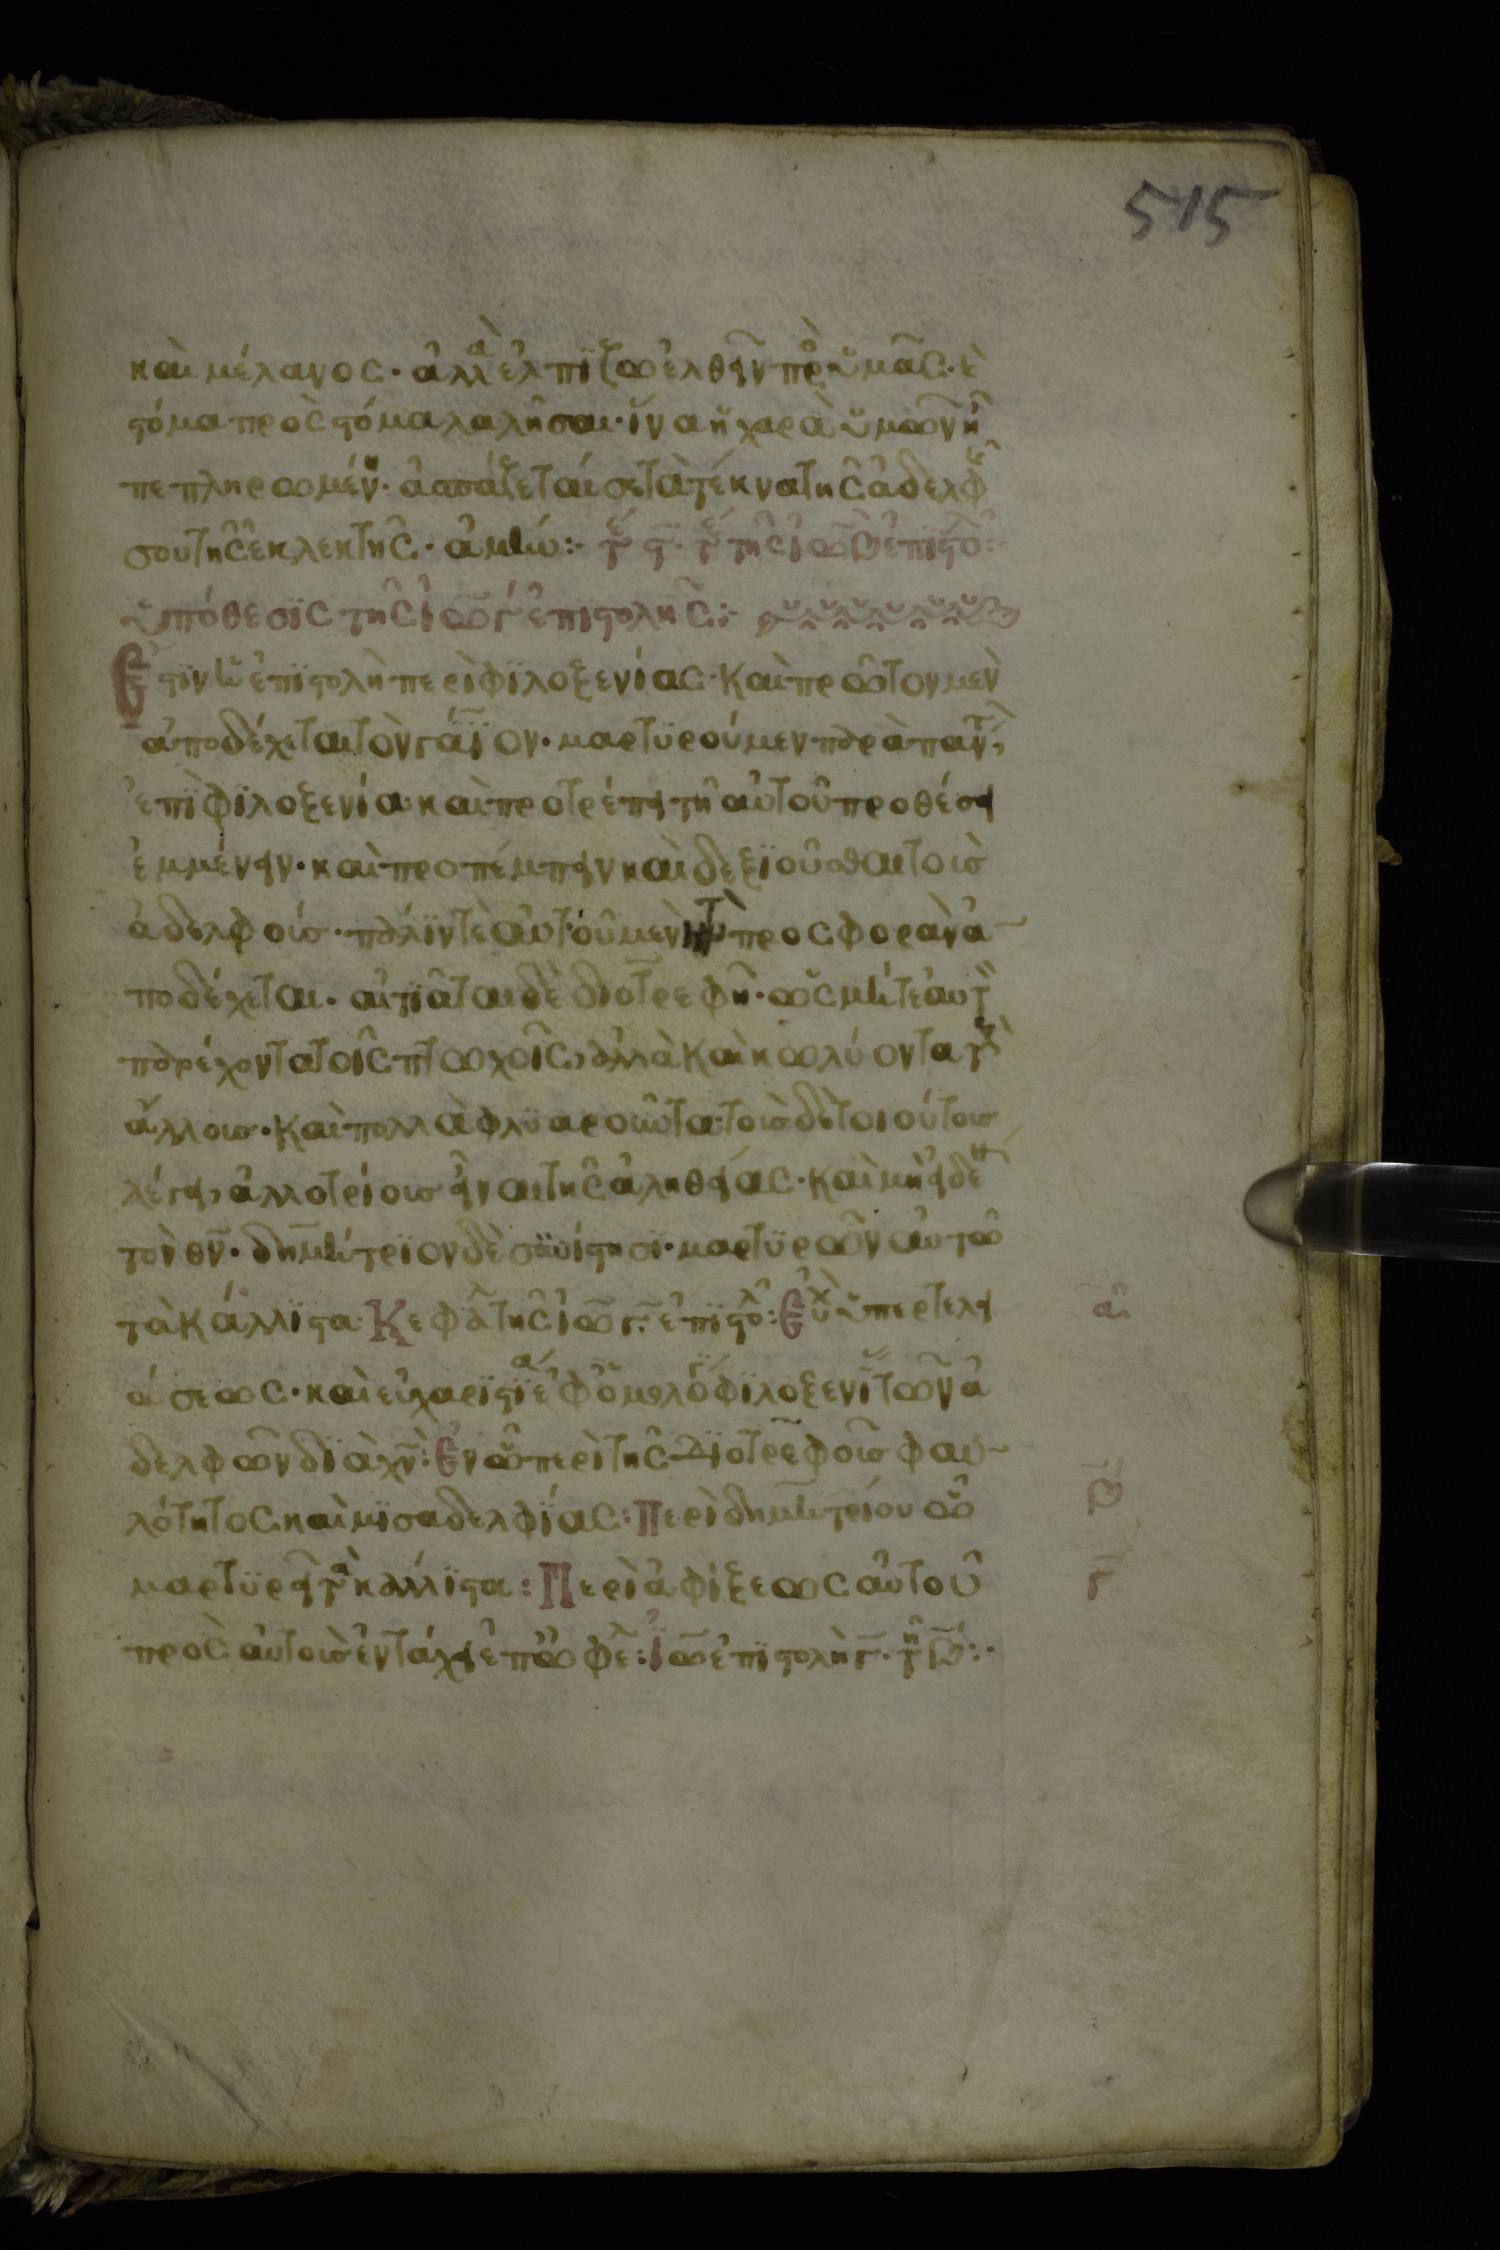 515
καὶ μέλανος· ἀλλὰ ἐλπίζω ἐλθεῖν πρὸ ὑμᾶς· κ̀
στόμα πρὸς στόμα λαλῆσαι· ἵνα ἡ χαρὰ ὑμῶν ἦ
πεπληρωμένη· ἀσπάζεταί σε τὰ τέκνα τῆς ἀδελφῆ
σου τῆς ἐκλεκτῆς· ἀμήν:· τῆς ἰω Β ἐπιστολ:
ὑπόθεσϊς τῆς ἰω γ ἐπιστολῆς:·
Ἔστιν ἡ ἐπϊστολὴ περὶ φϊλοξενίας· Καὶ πρῶτον μὲν
ἀποδέχεται τὸν γάϊον· μαρτϋρούμεν παρὰ παντ
ἐπὶ φϊλοξενία· καὶ προτρέπει τῆ αὐτοῦ προθέσει
ἐμμένειν· καὶ προπέμπειν καὶ δεξϊοῦσθαι τοὶς
ἀδελφοίς· πάλϊν τὲ αὐτοῦ μὲν τὴν προσφορὰν ἀ
ποδέχεται· αἰτϊᾶται δὲ διοτρεφῆ· ὡς μήτε αυτ
παρέχοντα τοῖς πτωχοῖς, ἀλλὰ Καὶ κωλύοντα τοὺ
ἄλλοις· Καὶ πολλὰ φλϋαροῦντα· τοὶς δὲ τοιούτοις
λέγει, ἀλλοτρίοις εἶναι τῆς ἀληθείας· Καὶ μὴ εἰδέ
τὸν θν· δημήτρϊον δὲ συνίστησϊ· μαρτϋρῶν αὐτῶ
τὰ Κάλλϊστα· Κεφα τῆς ἰω γ ἐπϊστολ: Εὐχ ὑπερ τελει
ώσεως· καὶ εὐχαρϊστϊα ἐφ ὁμολογ φϊλοξενϊ τῶν ἀ
δελφῶν δϊὰ χν: Ἐν ὧ περὶ τῆς Δϊοτρεφοῖς φαυ
λότητος καὶ μϊσαδελφΐας: Περὶ δημητρίου ὧ
μαρτϋρεῖ τὰ κάλλϊστα: Περὶ ἀφίξεως αὐτοῦ
πρὸς αὐτοὶς ἐν τάχει ἐπ ὠφε: Ἰω ἐπϊστολὴ γ·
α
Β
γ